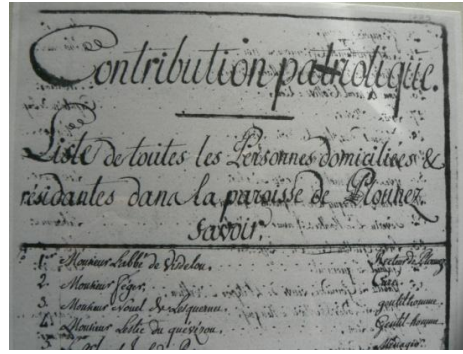 Contribution patriotique.
Liste de toutes les Personnes domiciliées &
résidantes dans la paroisse de Plouhez
Savoir.
1. Monsieur L'abbé de Visdelou. Recteur de
2. Monsieur Curé
3. Monsieur Nouel de Lesquernec gentilhomme.
4. Monsieur du quévézou. Gentilhomme.
Ménager